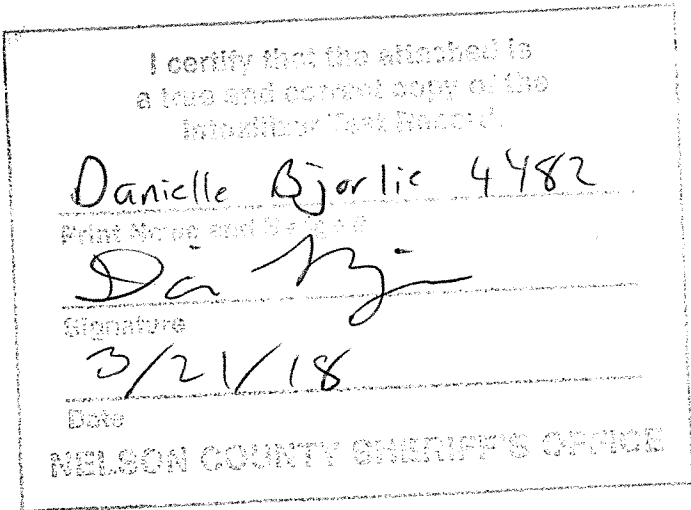 I certify that the attached is
a true and correct copy of the
Intoxilyzer Test Record.
Danielle Bjorlie 4482
Print Name and Badge #
Signature
3/21/18
Date
NELSON COUNTY SHERIFF'S OFFICE